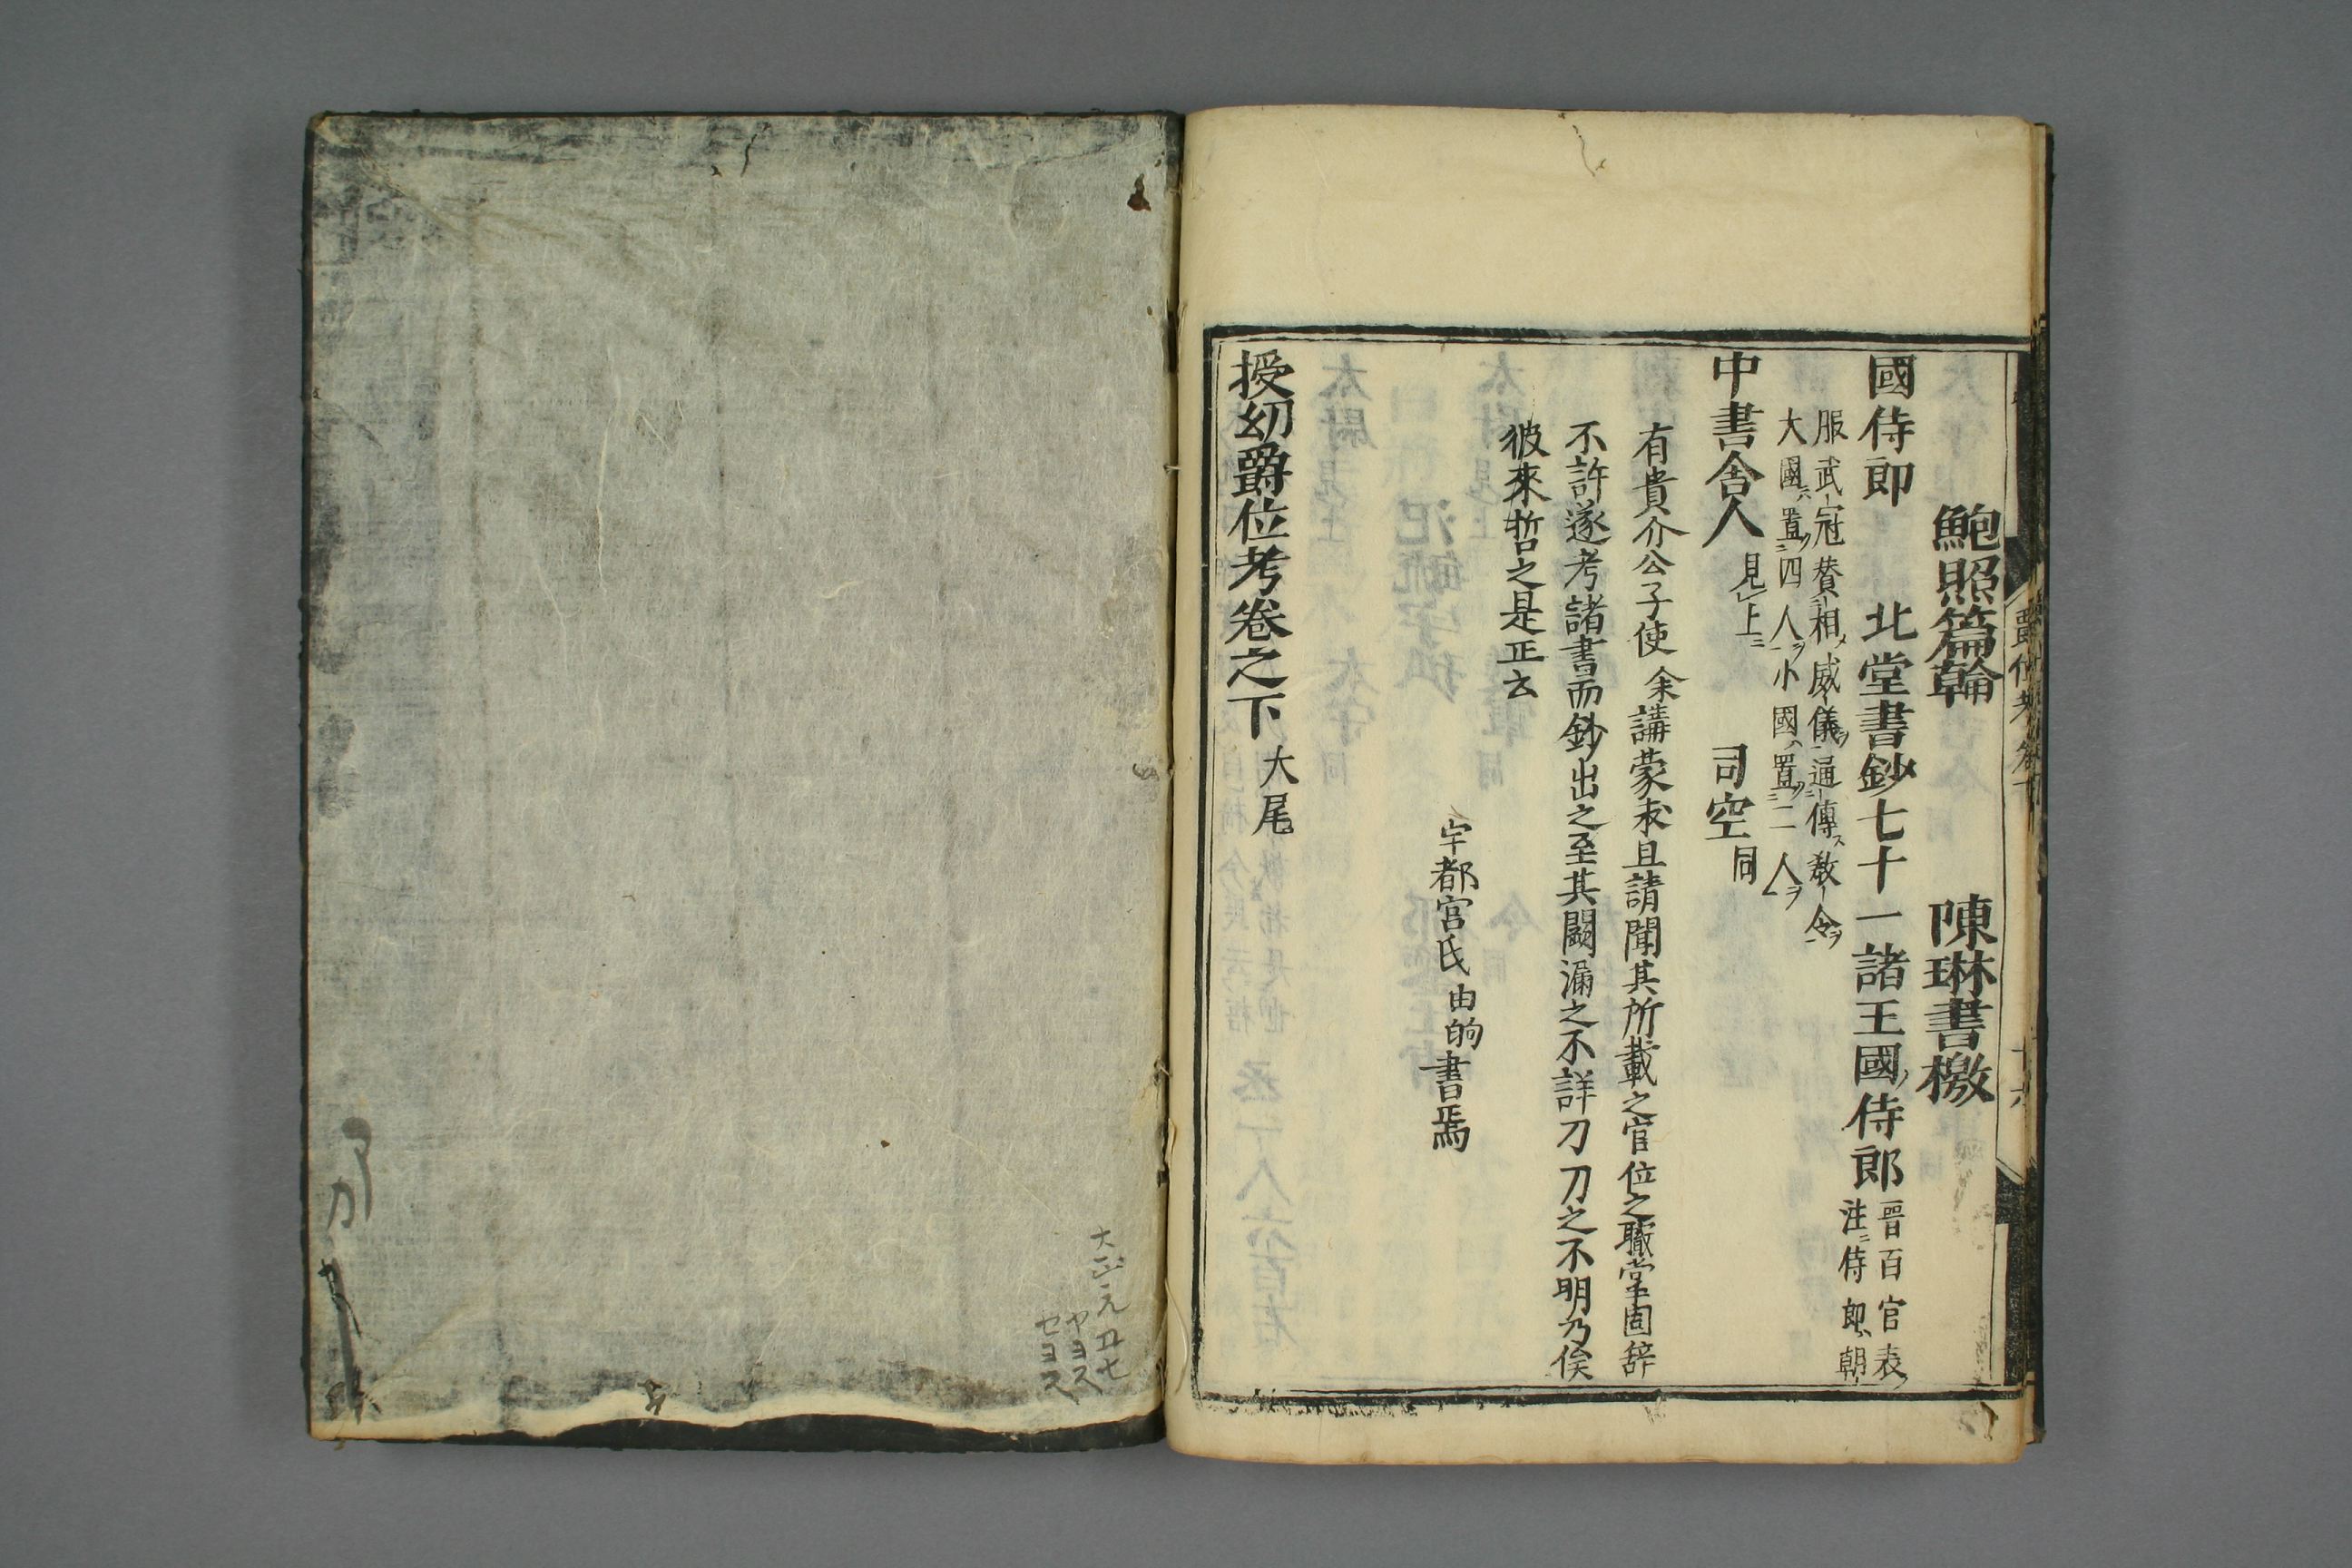 鮑照篇翰　陳琳書檄
國侍郎　北堂書鈔七十一諸王國侍郎晉百官表
注侍郎朝
服武冠賛相威儀通傳教令
大國置四人小國置二人
中書舍人見上　司空同
有貴介公子使余講蒙求且請聞其所載之官位之職掌固辞
不許遂考諸書而鈔出之至其闕漏之不詳刀刀之不明乃俟
彼來哲之是正云
宇都宮氏由的書焉
授幼爵位考卷之下大尾
大正元
ヤヨス
セヨス